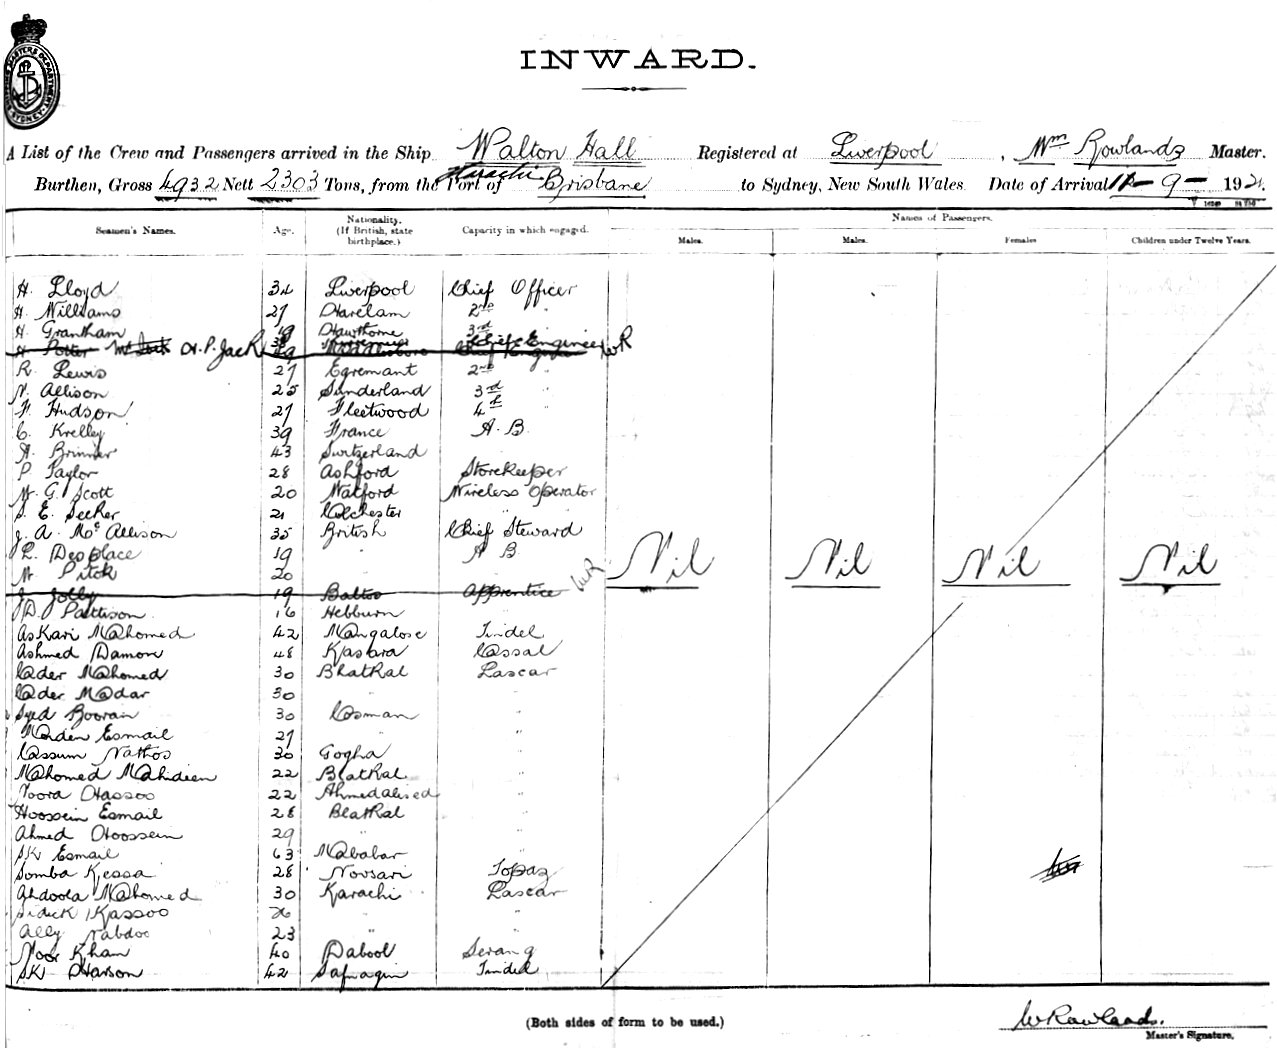 SHIPPING MASTERS DEPARTMENT SYDNEY
INWARD.
A List of the Crew and Passengers arrived in the Ship Walton Hall Registered at Liverpool, Wm Rowlands Master.
Burthen, Gross 4932 Nett 2303 Tons, from the Port of Karachi Brisbane to Sydney, New South Wales. Date of Arrival 9 - 192
Seamen's Names. Age. Nationality. (If British, state birthplace.) Capacity in which engaged. Names of Passengers.
Males. Males. Females Children under Twelve Years.
H. Lloyd 34 Liverpool Chief Officer
H. Williams 27 2nd "
H. Grantham 19 Hawthorne 3rd "
H Potter H. P. Jack Chief Engineer WR
R. Lewis 27 Egremant 2nd "
N. Allison 25 Sunderland 3rd "
F. Hudson 27 Fleetwood 4th "
C. Krelley 39 France A. B.
A. Brinner 43 Switzerland "
P. Taylor 28 Ashford Storekeeper
W. G. Scott 20 Watford Wireless Operator
S. E. Seeker 21 Colchester "
J. A. McAllison 35 British Chief Steward
L. Desplace 19 " A B
W Pitok 20 " "
J. Jolly 19 Apprentice WR
Nil Nil Nil Nil
D. Pattison 16 Hebburn "
Askari Mahomed 42 Mangalose Tindel
Ashmed Damon 48 Kaslara Cassal
Cader Mahomed 30 Bhatkal Lascar
Cader Madar 30 " "
Syed Boorain 30 Cosman "
Maden Esmail 27 " "
Cassum Nathoo 30 Gogha "
Mahomed Mahideen 22 Blatkal "
Noora Hassoo 22 "
Hoossein Esmail 28 Blatkal "
Ahmed Hoossein 29 " "
SK Esmail 63 Mababar "
Somba Kessa 28 Novsari Topaz
Abdoola Mahomed 30 Karachi Lascar
Sidick Kassoo 26 " "
Ally 23 " "
Noor Khan 40 Dabool Serang
SK Hasson 42 Tindel
(Both sides of form to be used.)
W Rowlands.
Master's Signature.